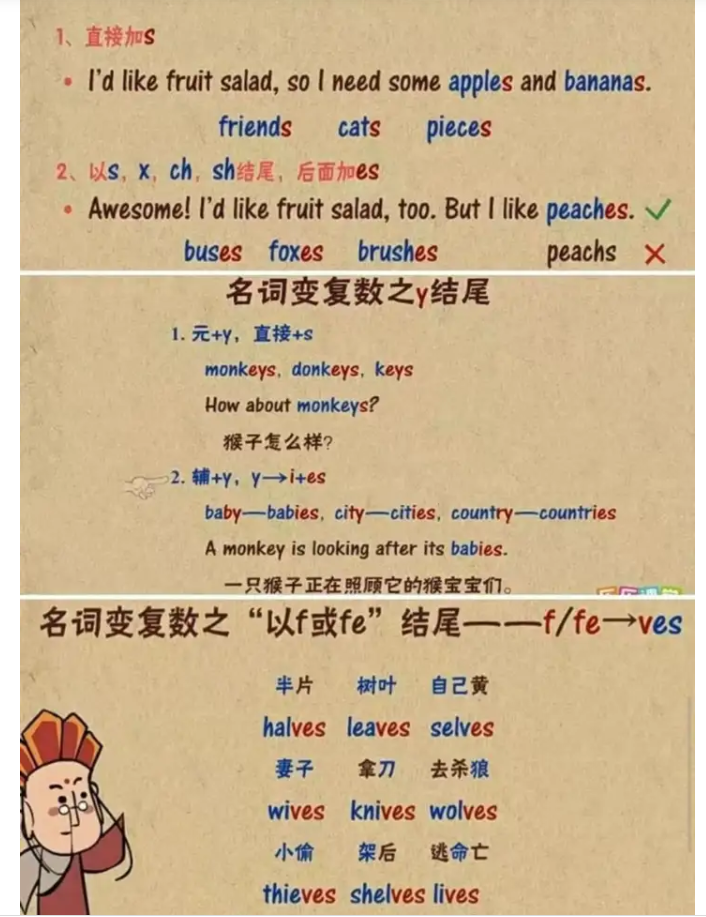 1、直接加s
• I'd like fruit salad, so I need some apples and bananas.
friends cats pieces
2、以s, x, ch, sh结尾, 后面加es
• Awesome! I'd like fruit salad, too. But I like peaches. ✓
buses foxes brushes peachs ✕
名词变复数之y结尾
1. 元+y, 直接+s
monkeys, donkeys, keys
How about monkeys?
猴子怎么样?
2. 辅+y, y→i+es
baby—babies, city—cities, country—countries
A monkey is looking after its babies.
一只猴子正在照顾它的猴宝宝们。
名词变复数之“以f或fe”结尾——f/fe→ves
半片 树叶 自己黄
halves leaves selves
妻子 拿刀 去杀狼
wives knives wolves
小偷 架后 逃命亡
thieves shelves lives